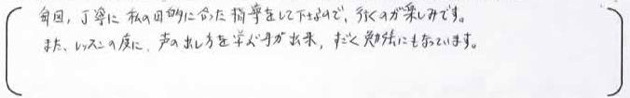 毎回、丁寧に私の目的に合った指導をして下さるので、行くのが楽しみです。
また、レッスンの度に、声の出し方を学ぶ事が出来、すごく勉強にもなっています。